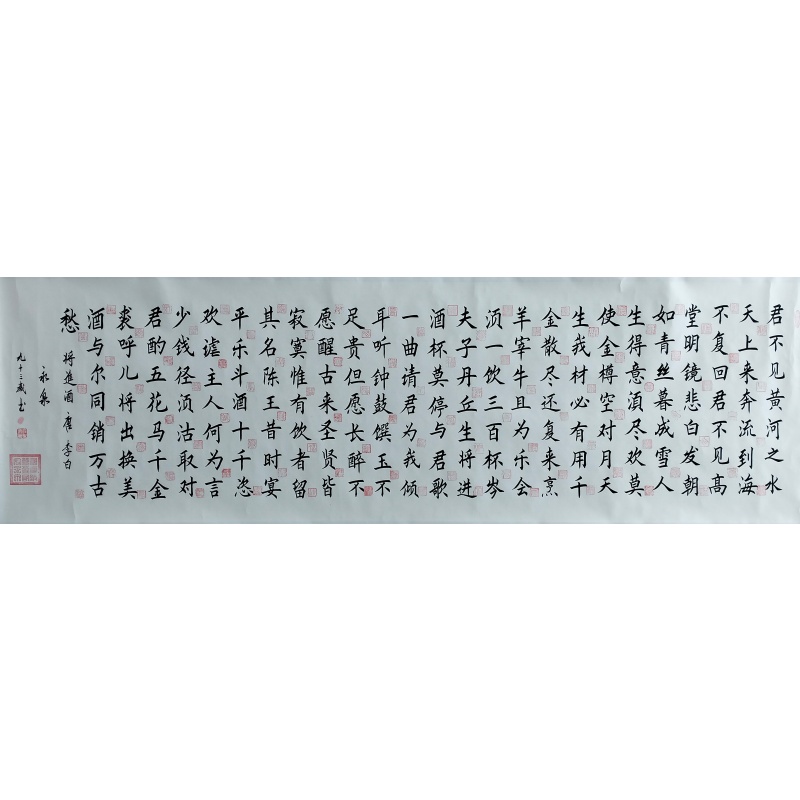 君不见黄河之水
天上来奔流到海
不复回君不见高
堂明镜悲白发朝
如青丝暮成雪人
生得意须尽欢莫
使金樽空对月天
生我材必有用千
金散尽还复来烹
羊宰牛且为乐会
须一饮三百杯岑
夫子丹丘生将进
酒杯莫停与君歌
一曲请君为我倾
耳听钟鼓馔玉不
足贵但愿长醉不
愿醒古来圣贤皆
寂寞惟有饮者留
其名陈王昔时宴
平乐斗酒十千恣
欢谑主人何为言
少钱径须沽取对
君酌五花马千金
裘呼儿将出换美
酒与尔同销万古
愁
将進酒 唐 李白
永泉
九十三歲书